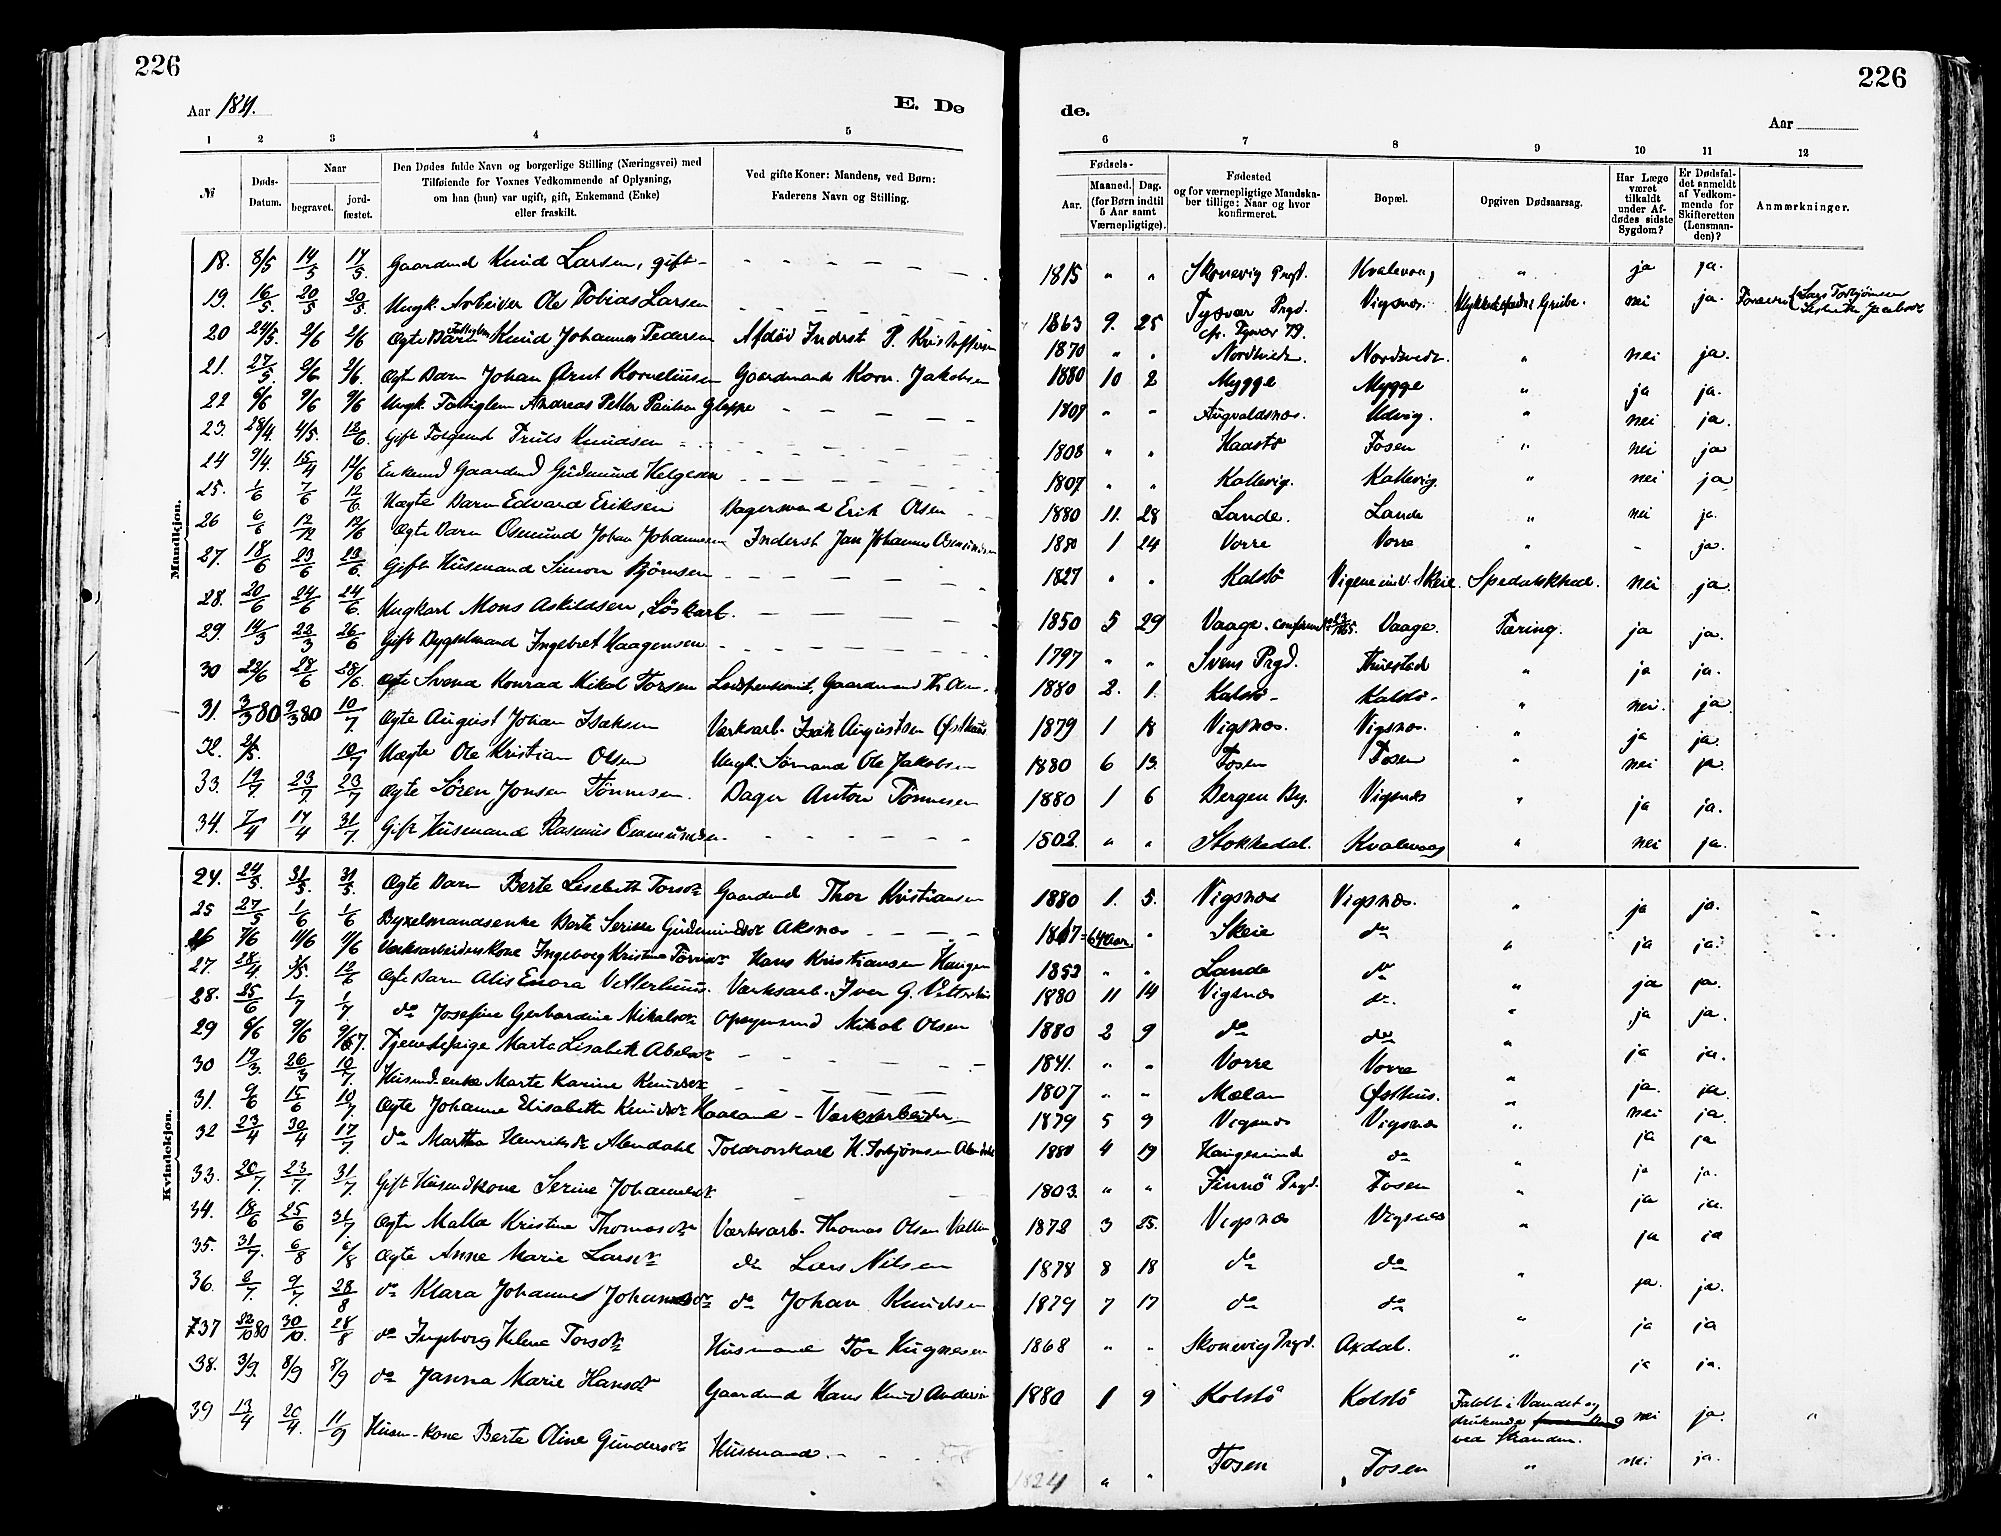 226
226
Aar 1881.
E. Dø
de.
Aar
1 2 3 4 5
6 7 8 9 10 11 12
№
Døds-Datum.
Naar
begravet.
jord-fæstet.
Den Dødes fulde Navn og borgerlige Stilling (Næringsvei) med
Tilføiende for Voxnes Vedkommende af Oplysning,
om han (hun) var ugift, gift, Enkemand (Enke)
eller fraskilt.
Ved gifte Koner: Mandens, ved Børn:
Faderens Navn og Stilling.
Fødsels-
Aar.
Maaned. Dag.
(for Børn indtil
5 Aar samt
Værnepligtige).
Fødested
og for værnepligtige Mandska-
ber tillige: Naar og hvor
konfirmeret.
Bopæl.
Opgiven Dødsaarsag.
Har Læge
været
tilkaldt
under Af-
dødes sidste
Sygdom?
Er Dødsfal-
det anmeldt
af Vedkom-
mende for
Skifteretten
(Lensman-
den)?
Anmærkninger.
Mandkjøn.
18. 8/5 14/5 17/5. Gaardmd Knud Larsen, gift 1815 " " Skonevig Prgd. Kvalevaag " ja ja.
19. 16/5. 20/5 20/5. Ungk. Arbeider Ole Tobias Larsen 1863 9. 25 Tysvær Prgd. Vigsnæs. Grube. nei ja.
20 24/5. 2/6 2/6 Ægte Barn Knud Johannes Pedersen Afdød Inderst P. Kristoffersen 1870 " " Nordtveit. Nordtveit. " nei ja.
21. 27/5 2/6 2/6. Ægte Barn Johan Ørnt Korneliusen Gaardmands Korn. Jakobsen 1880 10 2 Mygge Mygge " ja ja.
22 6/6 9/6 9/6 Ungk. Fattiglem Andreas Petter Paulsen Gloppe 1809 " " Augvaldsnæs. Udvig. " nei ja.
23. 28/4. 4/5. 12/6. Gift Truls Knudsen 1808 " " Haastø Fosen " nei ja
24 9/4. 15/4 12/6 Enkemd Gaardmd Gudmund Helgesen 1807 " " Kallevig. Kallevig. " nei ja
25. 1/6 7/6 12/6. Uægte Barn Edvard Eriksen Erik Olsen 1880 11. 28 Lande. Lande " nei ja.
26 6/6 12/6 Ægte Barn Osmund Johan Johannesen Inderst Jan Johannes 1880 1 24 Vorre Vorre " - ja.
27. 18/6 23/6 23/6. Gift Husmand Simon Bjørnsen 1827 " " Kalstø Skeie Spedalskhed. nei ja.
28. 20/6 24/6 24/6. Ungkarl Mons Askildsen, Løskarl. 1850 5 29 Vaage. Vaage. Tæring. ja ja.
29. 14/3 23/3 26/6 Gift Bygselmand Ingebret Haagensen 1797 " " Svens Prgd. " ja ja.
30 22/6 28/6 28/6. Ægte Svend Konrad Mikal Torsen 1880 2. 1. Kalstø Kalstø " nei. ja
31. 3/3 80 9/3 80 10/7. Ægte August Johan Isaksen Værksarb. Isak Augustsen Østhuus 1879 1 18 Vigsnæs. Vigsnæs. " ja ja.
32. 21/5. 10/7 Uægte Ole Kristian Olsen Ungk. Sømand Ole Jakobsen 1880 6 13. Fosen Fosen " nei ja.
33. 19/7 23/7. 23/7 Ægte Søren Jonsen Tønnesen. Anton Tønnesen 1880 1 6 Bergen By. Vigsnæs " ja ja.
34. 7/4 17/4 31/7. Gift Husmand Rasmus Ommundsen 1802. " " Stokkedal. Kvalevaag " nei ja.
Kvindekjøn.
24. 24/5. 31/5. 31/5. Ægte Barn Berte Lisebeth Torsdr Gaardmd Thor Kristiansen 1880 1. 5. Vigsnæs Vigsnæs. " ja ja.
25 27/5 1/6 1/6 Byxelmandsenke Berte Serine Gudmundsdr Aksnæs 1817 64 Aar. " Skeie do " ja ja.
26 7/6 11/6 11/6 Værksarbeiderskone Ingeborg Kristine Hans Kristiansen Haugen 1852 " " Lande do " ja ja.
27. 28/4 3/5. 12/6 Ægte Barn Alis Enora Vetterhuus. Værksarb. Iver G. 1880 11 14 Vigsnæs do. " ja ja.
28. 25/6 1/7 1/7. do Josefine Gerhardine Mikalsdr Opsynsmd Mikal Olsen 1880 2 9 do do "
29 6/6 9/6 Tjenestepige Marta Lisabeth Abelsdr 1841. " " Vorre Vorre " ja ja.
30 19/3. 26/3 10/7. Husmd.enke Marte Karine Knudsdr 1807 " " Mælan Østhus. " ja. ja.
31. 9/6 15/6 10/7. Ægte Johanne Elisabeth Knudsdr Haaland - Værksarbeider 1879 5 9 Vigsnæs Vigsnæs " nei ja.
32 23/4 30/4 17/7 do Martha Henriksdr Alendahl 1880 4 19 Haugesund do " ja ja
33. 20/7. 23/7. 31/7. Gift Husmdkone Serine Johannesdr 1803. " " Finnø Prgd. Fosen " ja ja.
34. 18/6 25/6 31/7. Ægte Malla Kristine Thomasdr Værksarb. Thomas Olsen 1872 3 25. Vigsnæs Vigsnæs " ja ja.
35. 31/7. 6/8 6/8 Ægte Anne Marie Larsdr do Lars Nilsen 1878 8 18 do do " ja ja
36. 2/7. 9/7. 28/8 do Klara Johannes do Johan Knudsen 1879 7 17 do do " ja. ja.
37 80 30/10. 28/8 do Ingeborg Helene Torsdr Husmand Tor 1868 " " Skonevig Prgd. Axdal. " ja ja
38. 3/9. 8/9 8/9 do Janna Marie Hansdr Gaardmd Hans Knud Andersen 1880 1 9 Kolstø Kolstø Faldt i Vandet og
druknede
ved Stranden. nei ja. "
39 13/4 20/4. 11/9 Husm.kone Berte Oline Gundersdr Husmand 1824 " " Fosen Fosen " nei ja.